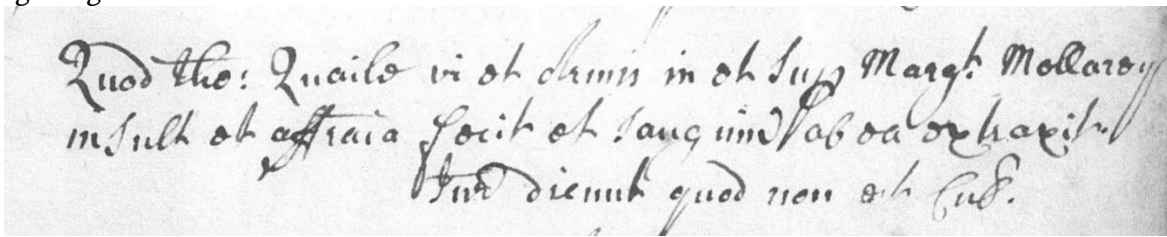 Quod Tho: Quaile vi et Armis in et Sup Margt Mollarey
insult et affraia fecit et sanguin ab ea extraxit.
Jur dicunt quod non est Cul.